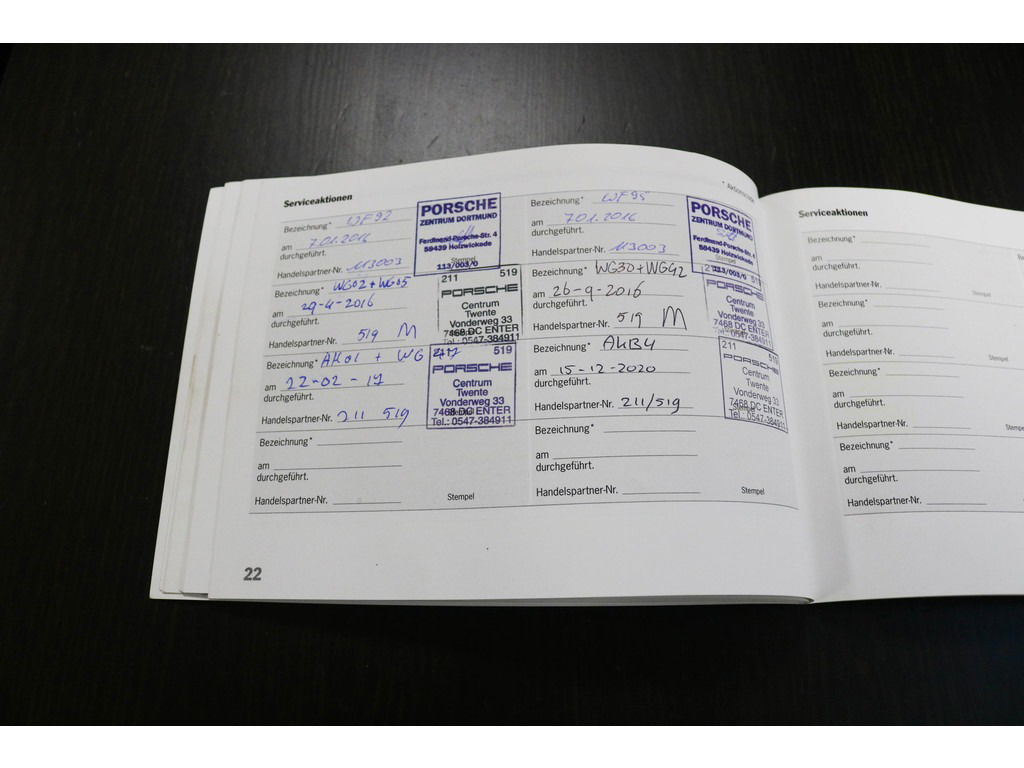 Serviceaktionen
Bezeichnung* WF92
am 7.01.2016
durchgeführt.
Handelspartner-Nr. 113003
PORSCHE
ZENTRUM DORTMUND
Ferdinand-Porsche-Str. 4
59439 Holzwickede
113/003/0
Bezeichnung* WG02 + WG05
am 29-4-2016
durchgeführt.
Handelspartner-Nr. 519 M
211 519
PORSCHE
Centrum
Twente
Vonderweg 33
7468 DC ENTER
Tel.: 0547-384911
Bezeichnung* AK01 + WG
am 22-02-17
durchgeführt.
Handelspartner-Nr. 211 519
519
PORSCHE
Centrum
Twente
Vonderweg 33
7468 DC ENTER
Tel.: 0547-384911
Bezeichnung*
am
durchgeführt.
Handelspartner-Nr. Stempel
* Aktionscode
Bezeichnung* WF95
am 7.01.2016
durchgeführt.
Handelspartner-Nr. 113003
PORSCHE
ZENTRUM DORTMUND
Ferdinand-Porsche-Str. 4
59439 Holzwickede
Stempel
113/003/0
Bezeichnung* WG30 + WG42
am 26-9-2016
durchgeführt.
Handelspartner-Nr. 519 M
PORSCHE
Centrum
Twente
Vonderweg 33
7468 DC ENTER
Tel.: 0547-384911
Bezeichnung* AKB4
am 15-12-2020
durchgeführt.
Handelspartner-Nr. 211/519
211 519
PORSCHE
Centrum
Twente
Vonderweg 33
7468 DC ENTER
Tel.: 0547-384911
Bezeichnung*
am
durchgeführt.
Handelspartner-Nr. Stempel
22
Serviceaktionen
Bezeichnung*
am
durchgeführt.
Handelspartner-Nr. Stempel
Bezeichnung*
am
durchgeführt.
Handelspartner-Nr. Stempel
Bezeichnung*
am
durchgeführt.
Handelspartner-Nr.
Bezeichnung*
am
durchgeführt.
Handelspartner-Nr.